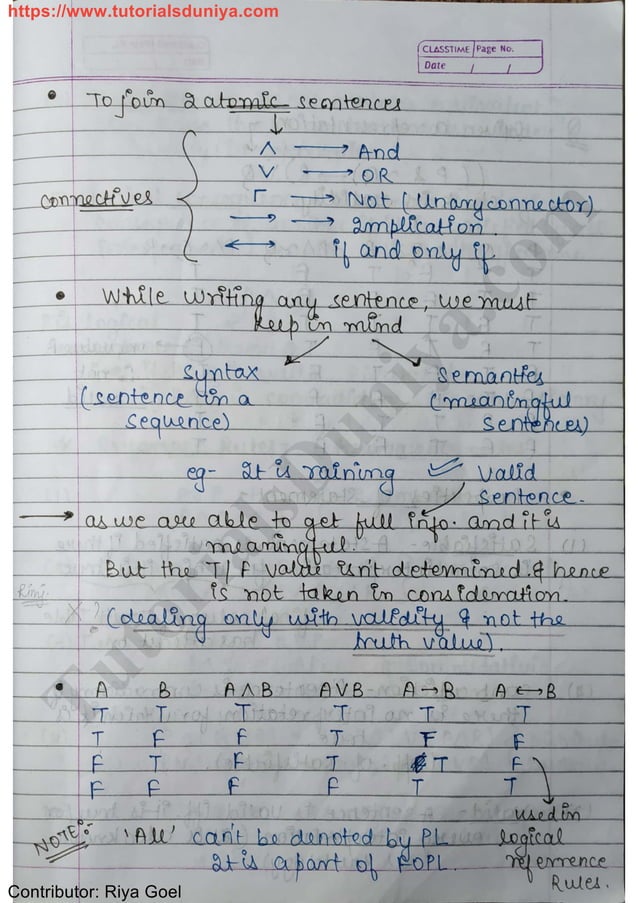 https://www.tutorialsduniya.com
CLASSTIME Page No.
Date / /
• To join 2 atomic sentences
connectives
∧ → And
∨ → OR
Γ → Not (Unary connector)
→ → Implication.
↔ if and only if
• While writing any sentence, we must
keep in mind
Syntax Semantics
(sentence in a (meaningful
sequence) sentences)
eg- It is raining ✓ valid
sentence.
→ as we are able to get full info. and it is
meaningful.
But the T/F value isn't determined & hence
is not taken in consideration.
(dealing only with validity & not the
truth value).
• A B A∧B A∨B A→B A↔B
T T T T T T
T F F T F F
F T F T T F
F F F F T T
used in
logical
referrence
Rules.
NOTE:- 'All' can't be denoted by PL
It is a part of FOPL.
TutorialsDuniya.com
Contributor: Riya Goel